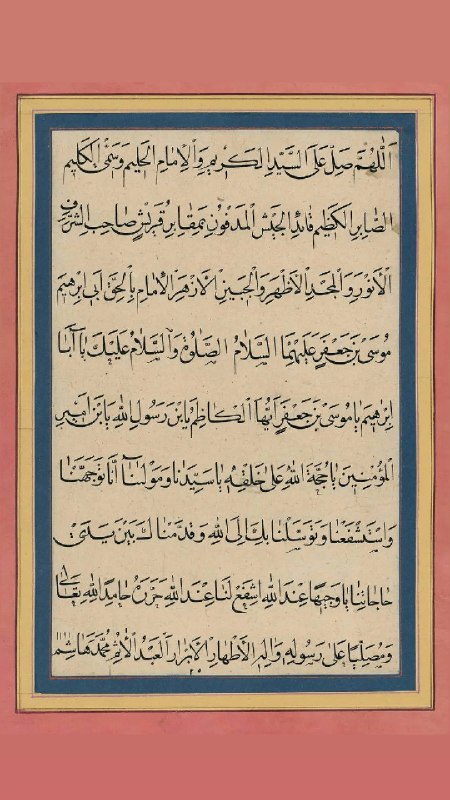 اَللّٰهُمَّ صَلِّ عَلَى السَّيِّدِ الكَرِيمِ وَالإِمَامِ الحَلِيمِ وَسَمِيِّ الكَلِيمِ
الصَّابِرِ الكَظِيمِ قَائِدِ الجَيْشِ المَدْفُونِ بِمَقَابِرِ قُرَيْشٍ صَاحِبِ الشَّرَفِ
الأَنْوَرِ وَالمَجْدِ الأَظْهَرِ وَالجَبِينِ الأَزْهَرِ الإِمَامِ بِالحَقِّ أَبِي إِبْرَهِيمَ
مُوسَى بْنِ جَعْفَرٍ عَلَيْهِمَا السَّلَامُ الصَّلوٰةُ وَالسَّلَامُ عَلَيْكَ يَا أَبَا
إِبْرَهِيمَ يَا مُوسَى بْنَ جَعْفَرٍ أَيُّهَا الكَاظِمُ يَا بْنَ رَسُولِ اللهِ يَا بْنَ أَمِيرِ
المُؤْمِنِينَ يَا حُجَّةَ اللهِ عَلَى خَلْقِهِ يَا سَيِّدَنَا وَمَوْلَانَا إِنَّا تَوَجَّهْنَا
وَاسْتَشْفَعْنَا وَتَوَسَّلْنَا بِكَ إِلَى اللهِ وَقَدَّمْنَاكَ بَيْنَ يَدَيْ
حَاجَاتِنَا يَا وَجِيهًا عِنْدَ اللهِ اِشْفَعْ لَنَا عِنْدَ اللهِ حَرَّرَهُ حَامِدًا لِلّٰهِ تَعَالٰى
وَمُصَلِّيًا عَلَى رَسُولِهِ وَآلِهِ الأَطْهَارِ الأَبْرَارِ العَبْدُ الأَثِيمُ مُحَمَّد هَاشِم